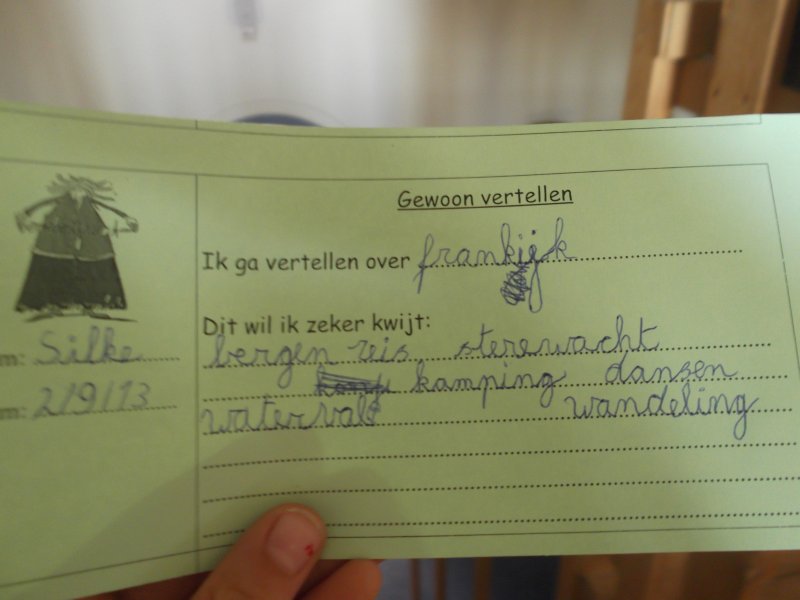 Gewoon vertellen
Ik ga vertellen over frankijk
Dit wil ik zeker kwijt:
m: Silke
bergen reis sterewacht
kamping dansen
m: 2/9/13
watervale wandeling